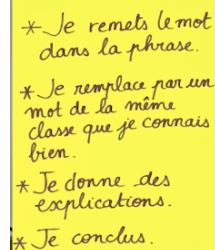 * Je remets le mot
dans la phrase.
* Je remplace par un
mot de la même
classe que je connais
bien.
* Je donne des
explications.
* Je conclus.